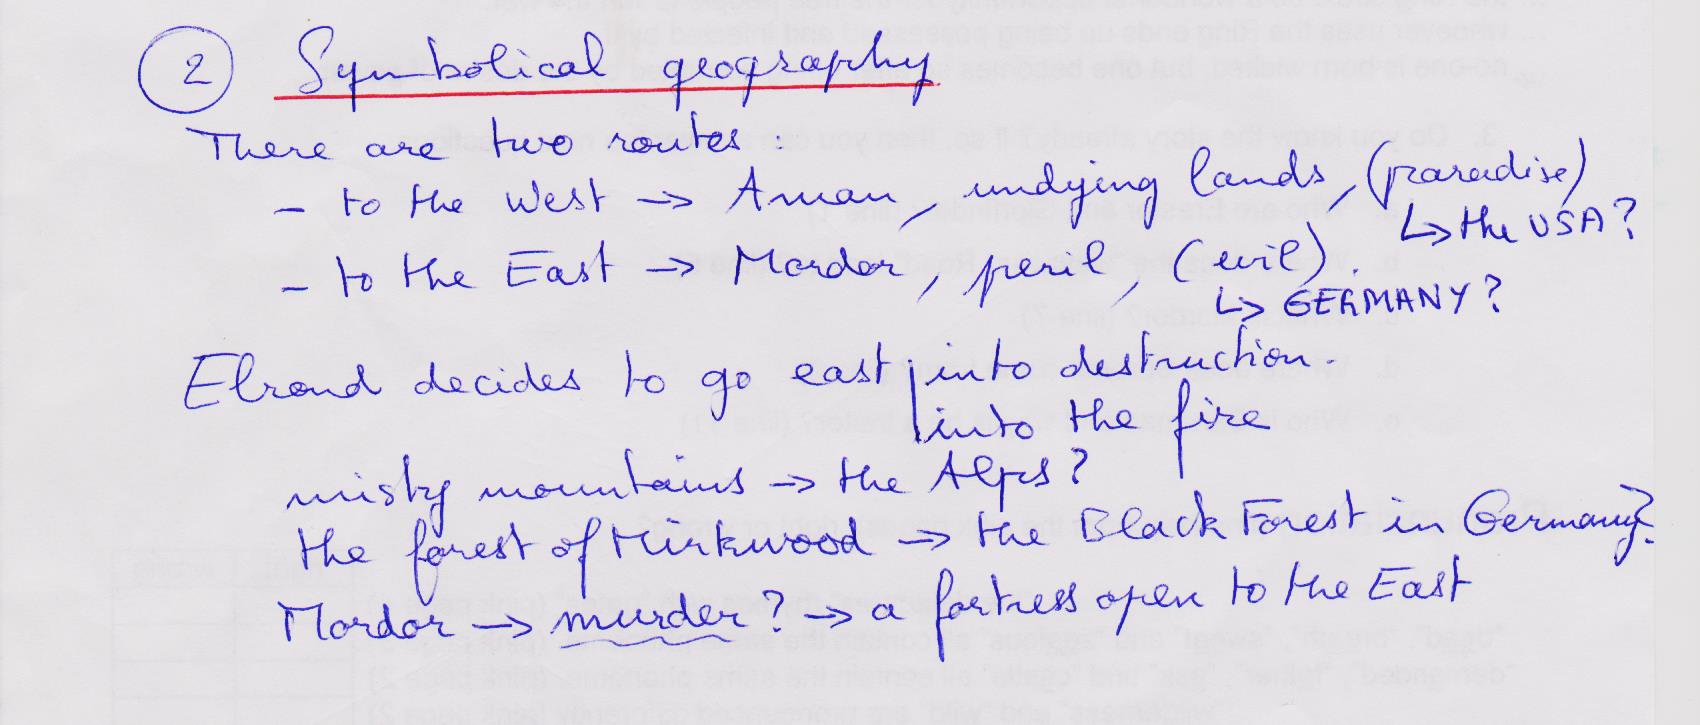 2 Symbolical geography
There are two routes:
- to the West → Aman, undying lands, (paradise)
↳ the USA?
- to the East → Mordor, peril, (evil).
↳ GERMANY?
Elrond decides to go east into destruction.
into the fire
misty mountains → the Alps?
the forest of Mirkwood → the Black Forest in Germany?
Mordor → murder? → a fortress open to the East